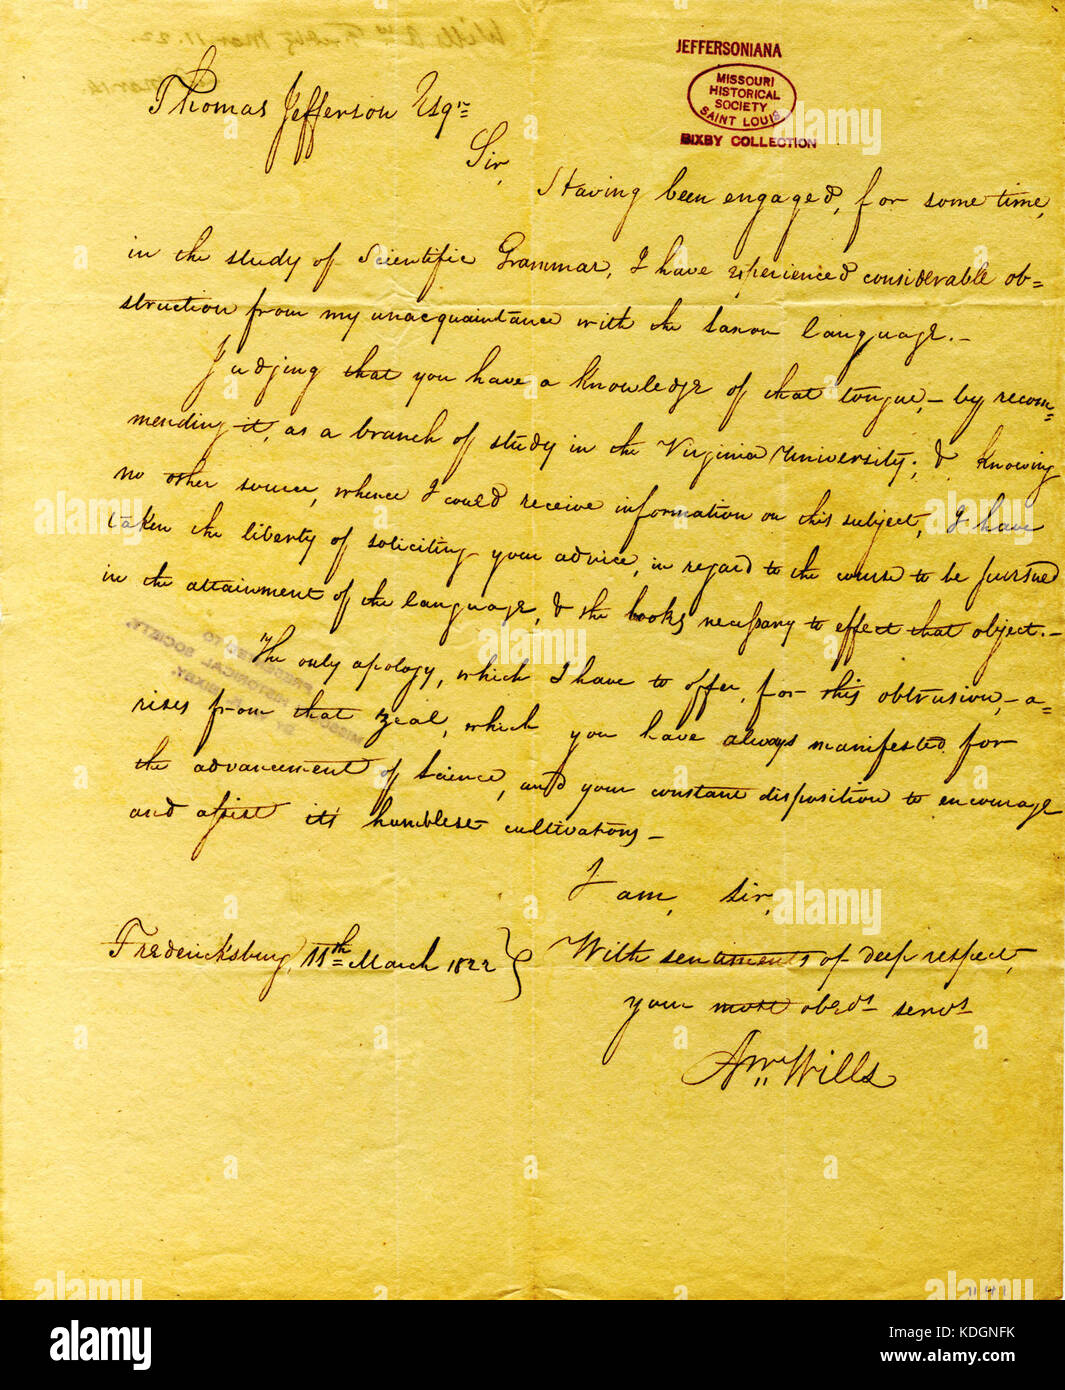 JEFFERSONIANA
MISSOURI
HISTORICAL
SOCIETY
SAINT LOUIS
BIXBY COLLECTION
Thomas Jefferson Esqr
Sir,
Having been engaged, for some time,
in the study of Scientific Grammar, I have experienced considerable ob=
struction from my unacquaintance with the Saxon language.—
Judging that you have a knowledge of that tongue,— by recom=
mending it, as a branch of study in the Virginia University; & knowing
no other source, whence I could receive information on this subject, I have
taken the liberty of soliciting your advice, in regard to the course to be pursued
in the attainment of the language, & the books necessary to effect that object.—
The only apology, which I have to offer, for this obtrusion,— a=
rises from that zeal, which you have always manifested for
the advancement of Science, and your constant disposition to encourage
and assist its' humblest cultivators—
I am, sir,
Fredericksburg, 11th March 1822
With sentiments of deep respect,
your most obedt servt
Wills
alamy
Image ID: KDGNFK
www.alamy.com